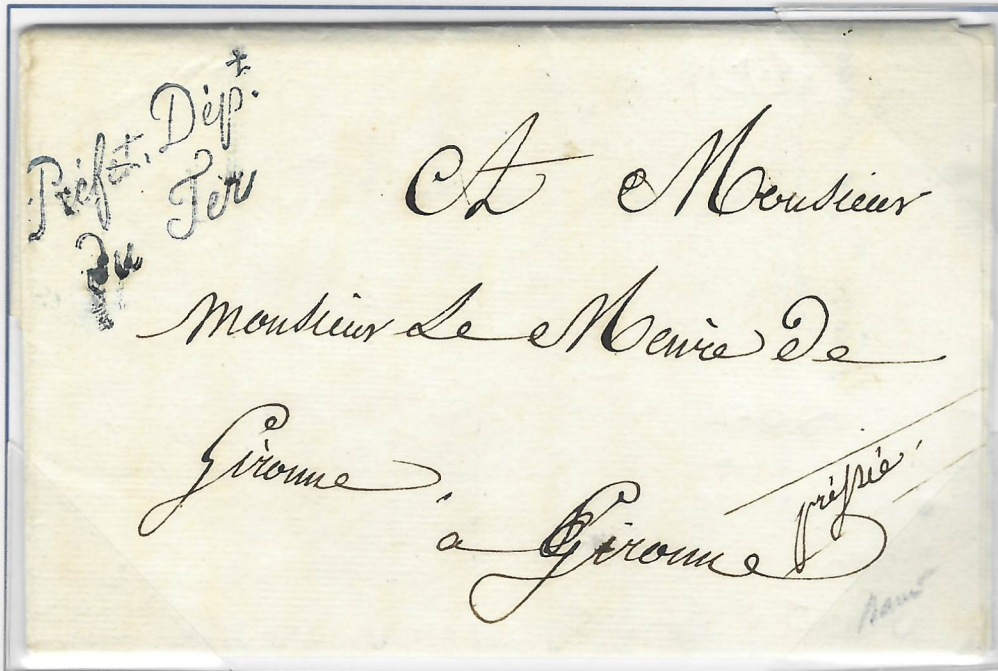 Préf.et Dép.t
du Ter
A Monsieur
Monsieur Le Maire De
Gironne
à Gironne
préssée